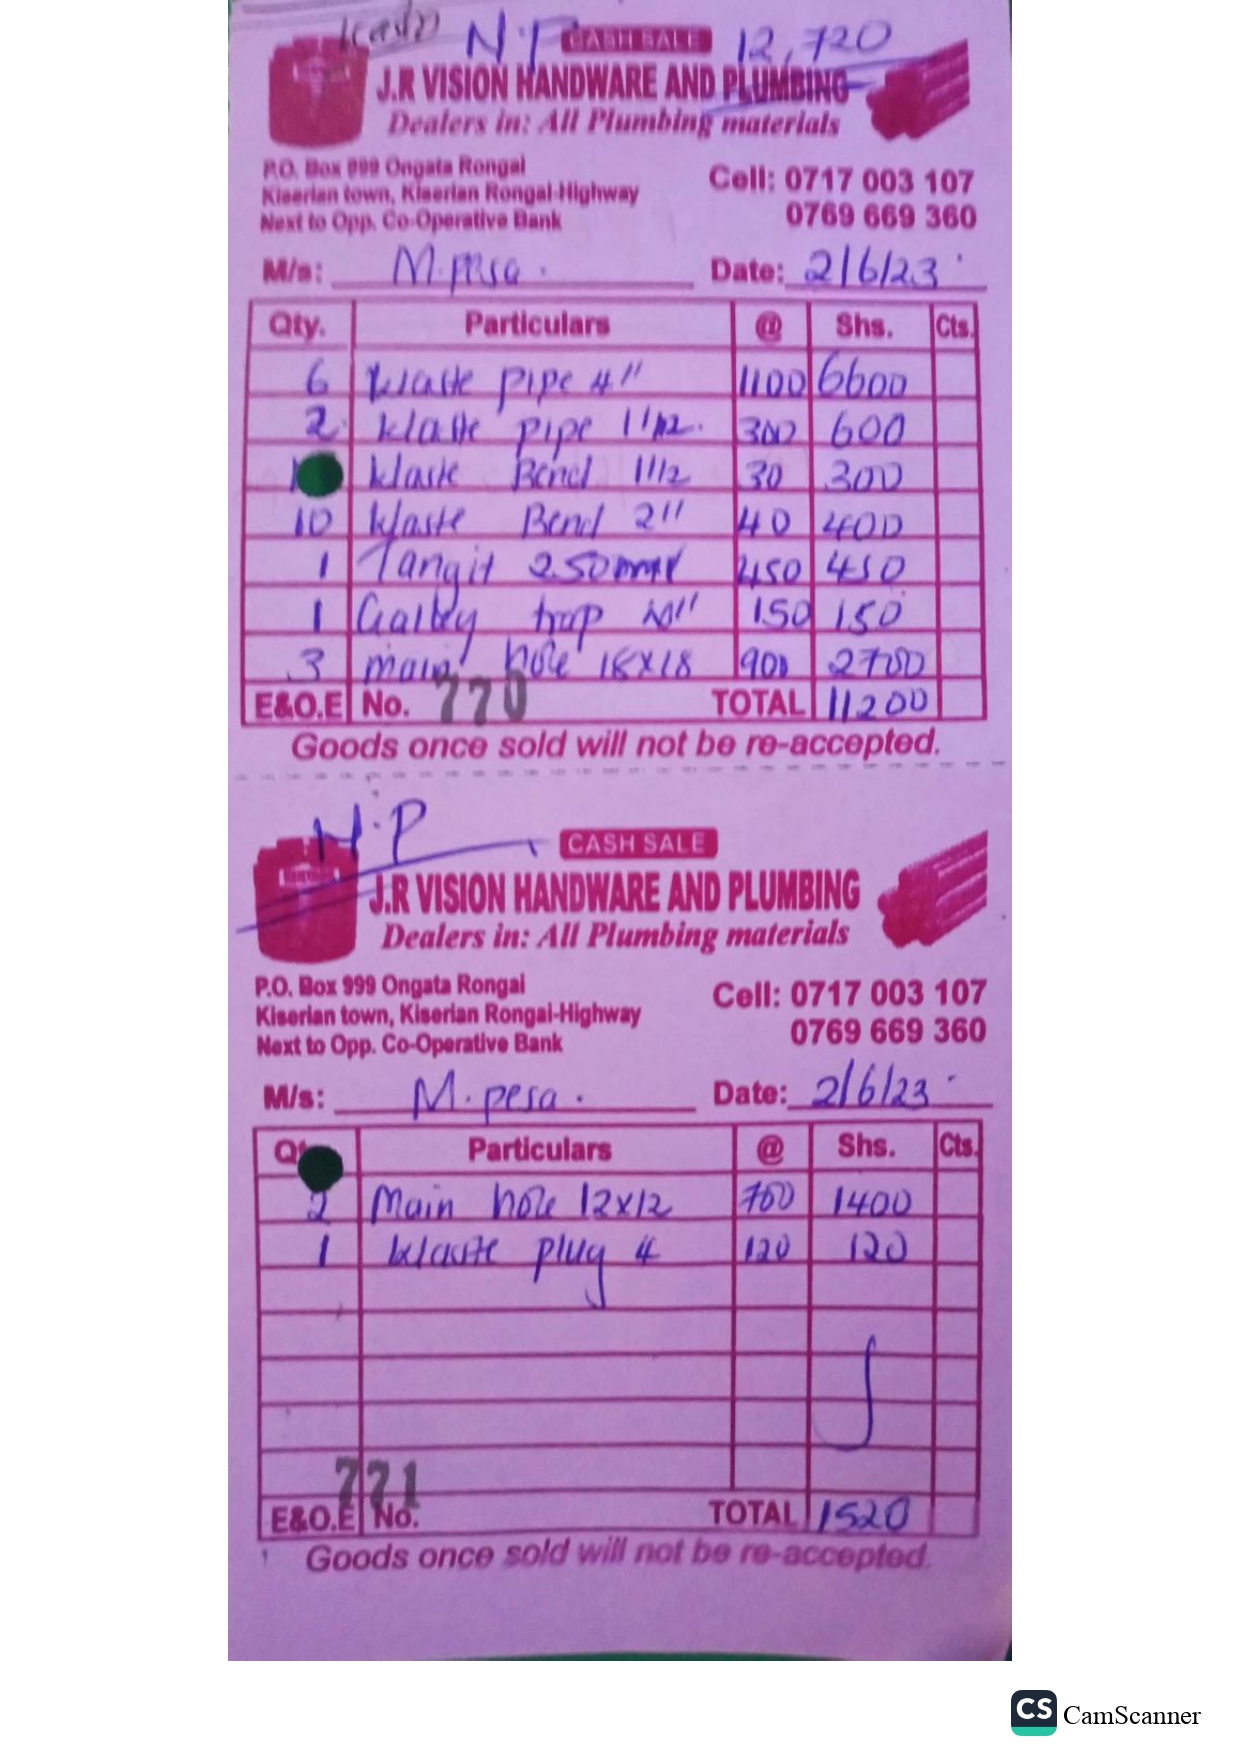 N.P CASH SALE 12,720
J.R VISION HANDWARE AND PLUMBING
Dealers in: All Plumbing materials
P.O. Box 999 Ongata Rongai
Kiserian town, Kiserian Rongai-Highway
Next to Opp. Co-Operative Bank
Cell: 0717 003 107
0769 669 360
M/s: M.pesa. Date: 2/6/23
Qty. Particulars @ Shs. Cts.
6 Waste pipe 4" 1100 6600
2 Waste pipe 1 1/2. 300 600
Waste Bend 1 1/2 30 300
10 Waste Bend 2" 40 400
1 Tangit 250mm 450 450
1 Galley trap 150 150
3 main hole 18x18 900 2700
E&O.E No. 770 TOTAL 11200
Goods once sold will not be re-accepted.
N.P
CASH SALE
J.R VISION HANDWARE AND PLUMBING
Dealers in: All Plumbing materials
P.O. Box 999 Ongata Rongai
Kiserian town, Kiserian Rongai-Highway
Next to Opp. Co-Operative Bank
Cell: 0717 003 107
0769 669 360
M/s: M.pesa. Date: 2/6/23
Particulars @ Shs. Cts.
2 Main hole 12x12 700 1400
1 Waste plug 4 120 120
771
E&O.E No. TOTAL 1520
Goods once sold will not be re-accepted.
CS CamScanner